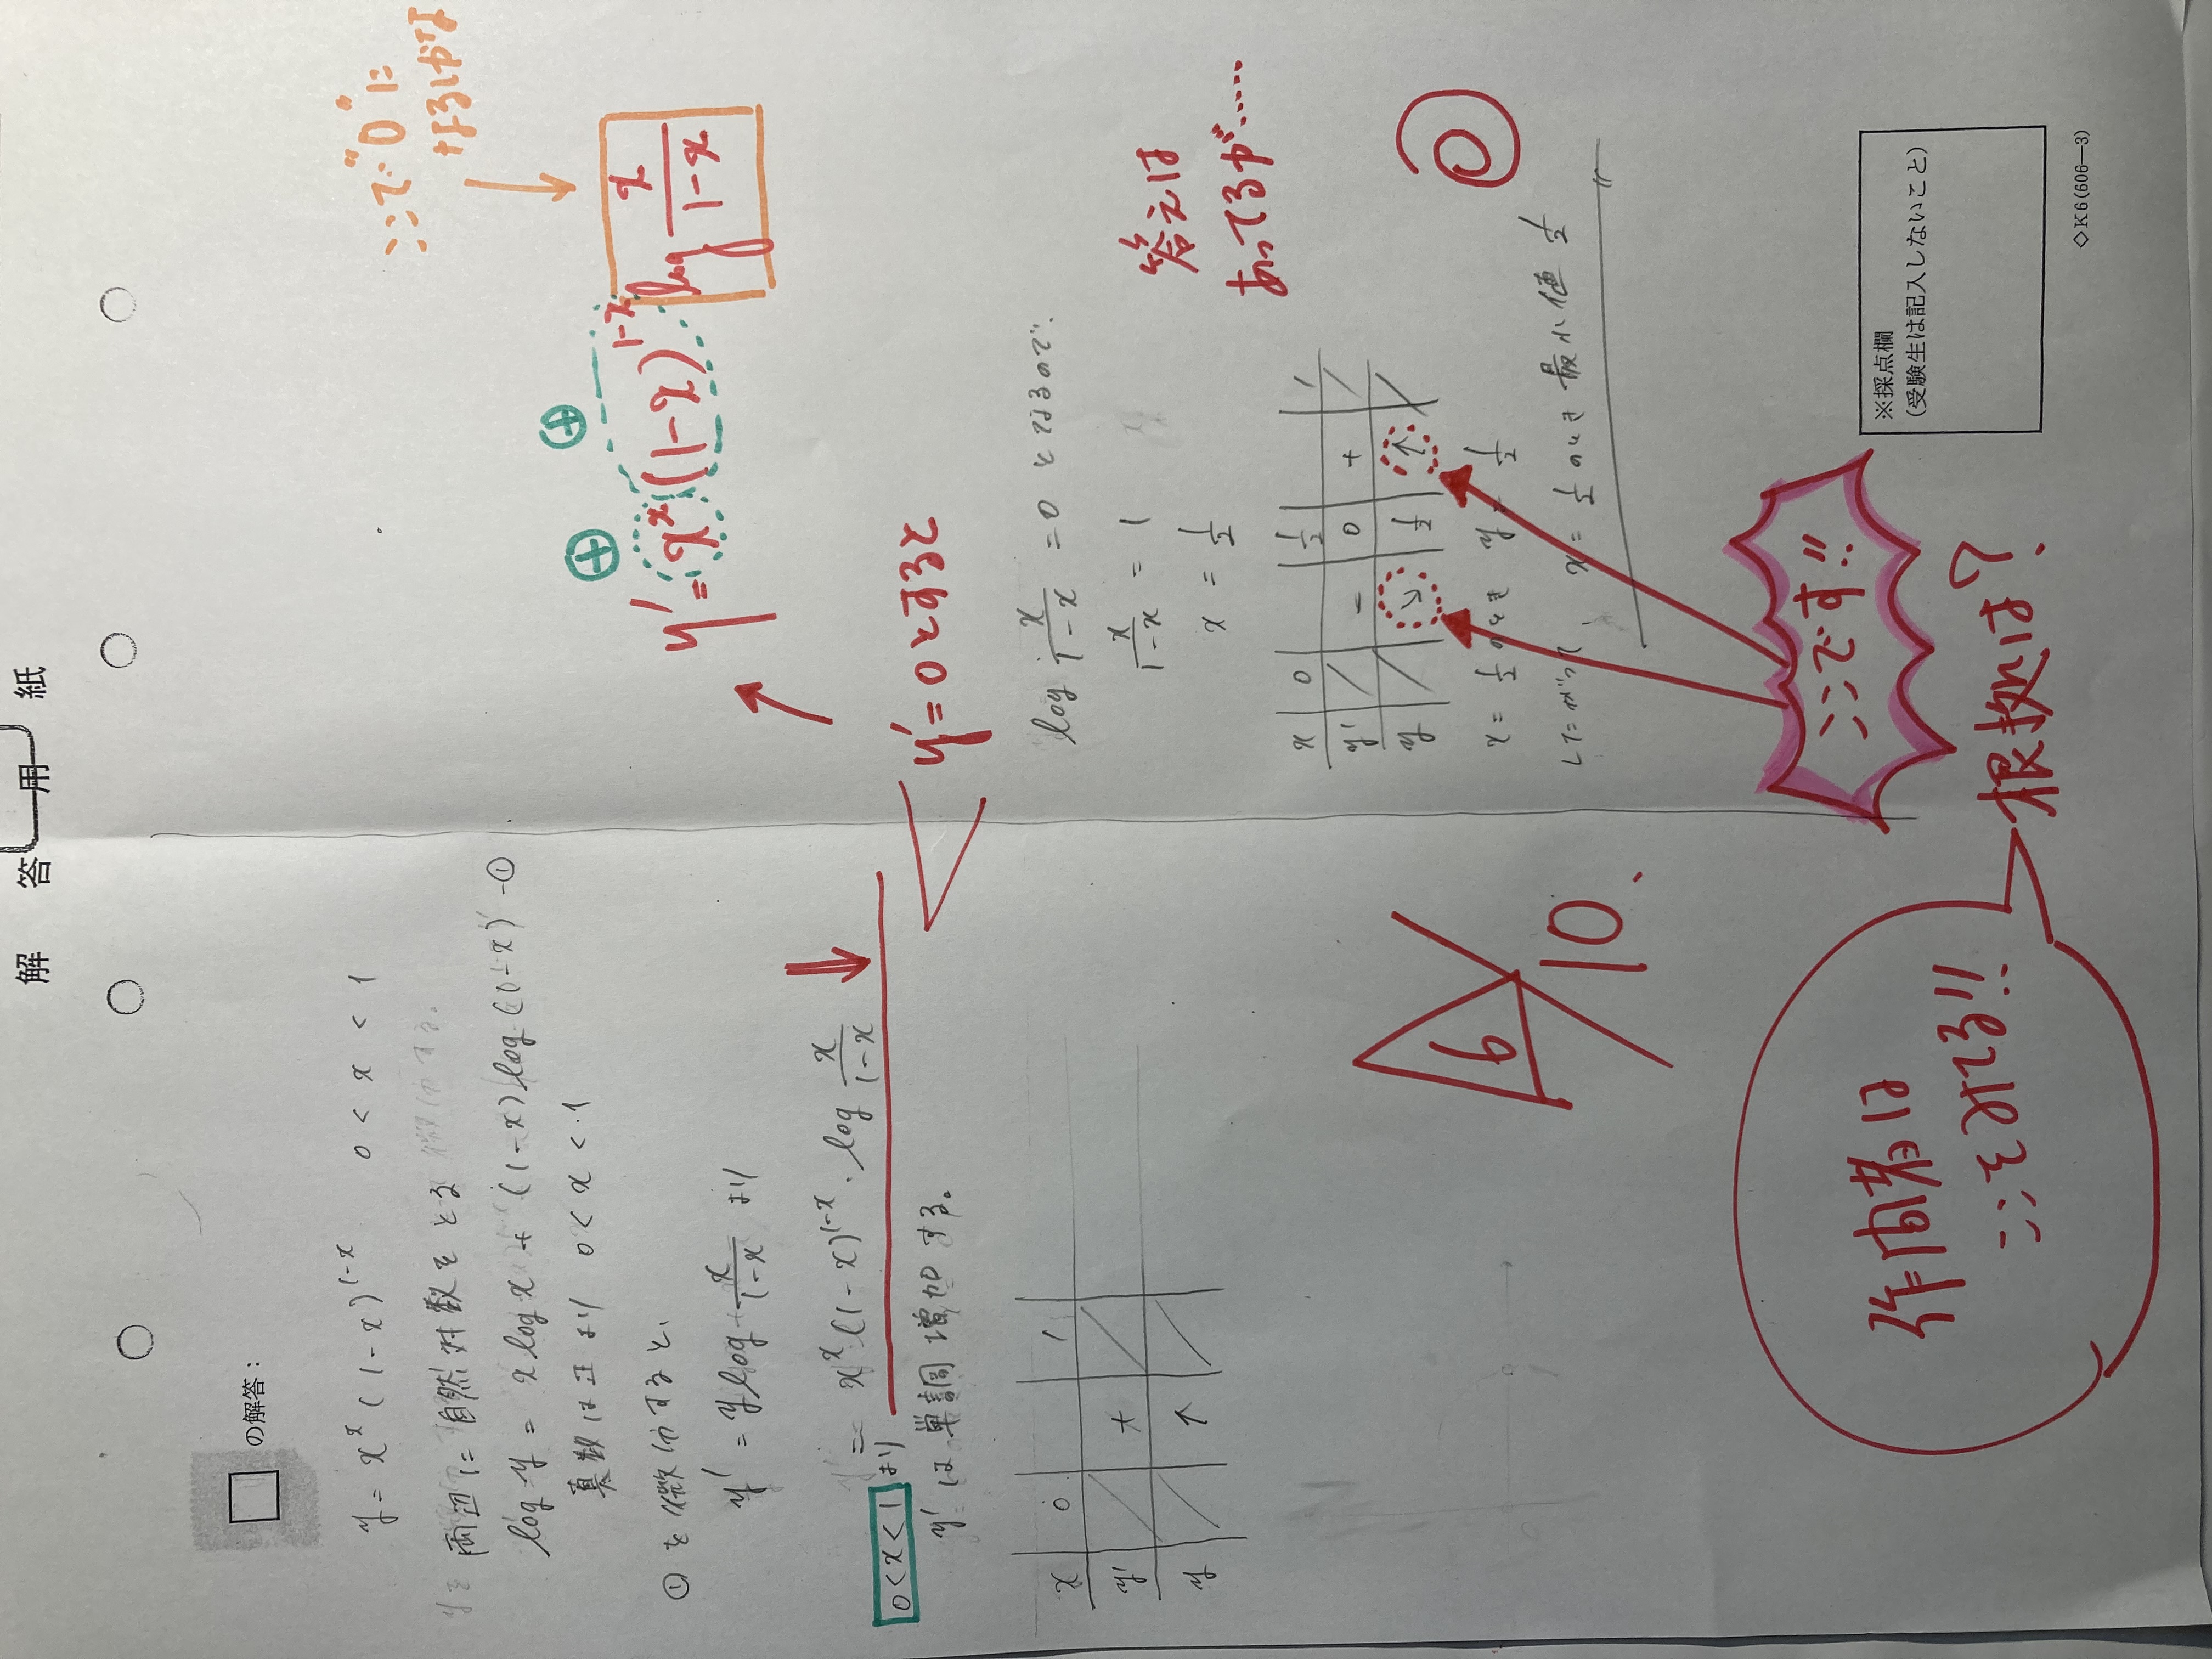 解答用紙
□の解答：
y = x^x (1-x)^{1-x}　0 < x < 1
両辺に自然対数をとる
log y = x log x + (1-x) log (1-x) -①
真数は正より 0 < x < 1
①を微分すると、
y' = y log x/(1-x) より
y' = x^x (1-x)^{1-x} · log x/(1-x)
0<x<1 より
y' は単調増加する。
x 0 1
y' +
y ↗
6/10
ここで"0"に
なるしかない
y' = x^x (1-x)^{1-x} log x/(1-x)
⊕ ⊕
y' = 0 とすると
log x/(1-x) = 0 となるので、
x/(1-x) = 1
x = 1/2
答えは
あってるが……
x 0 1/2 1
y' - 0 +
y ↘ 1/2 ↗
x = 1/2 のとき y = 1/2
したがって、 x = 1/2 のとき 最小値 1/2
ここです!!
作問者は
ここをみてる!!
根拠は？
※採点欄
（受験生は記入しないこと）
◇K6(606—3)